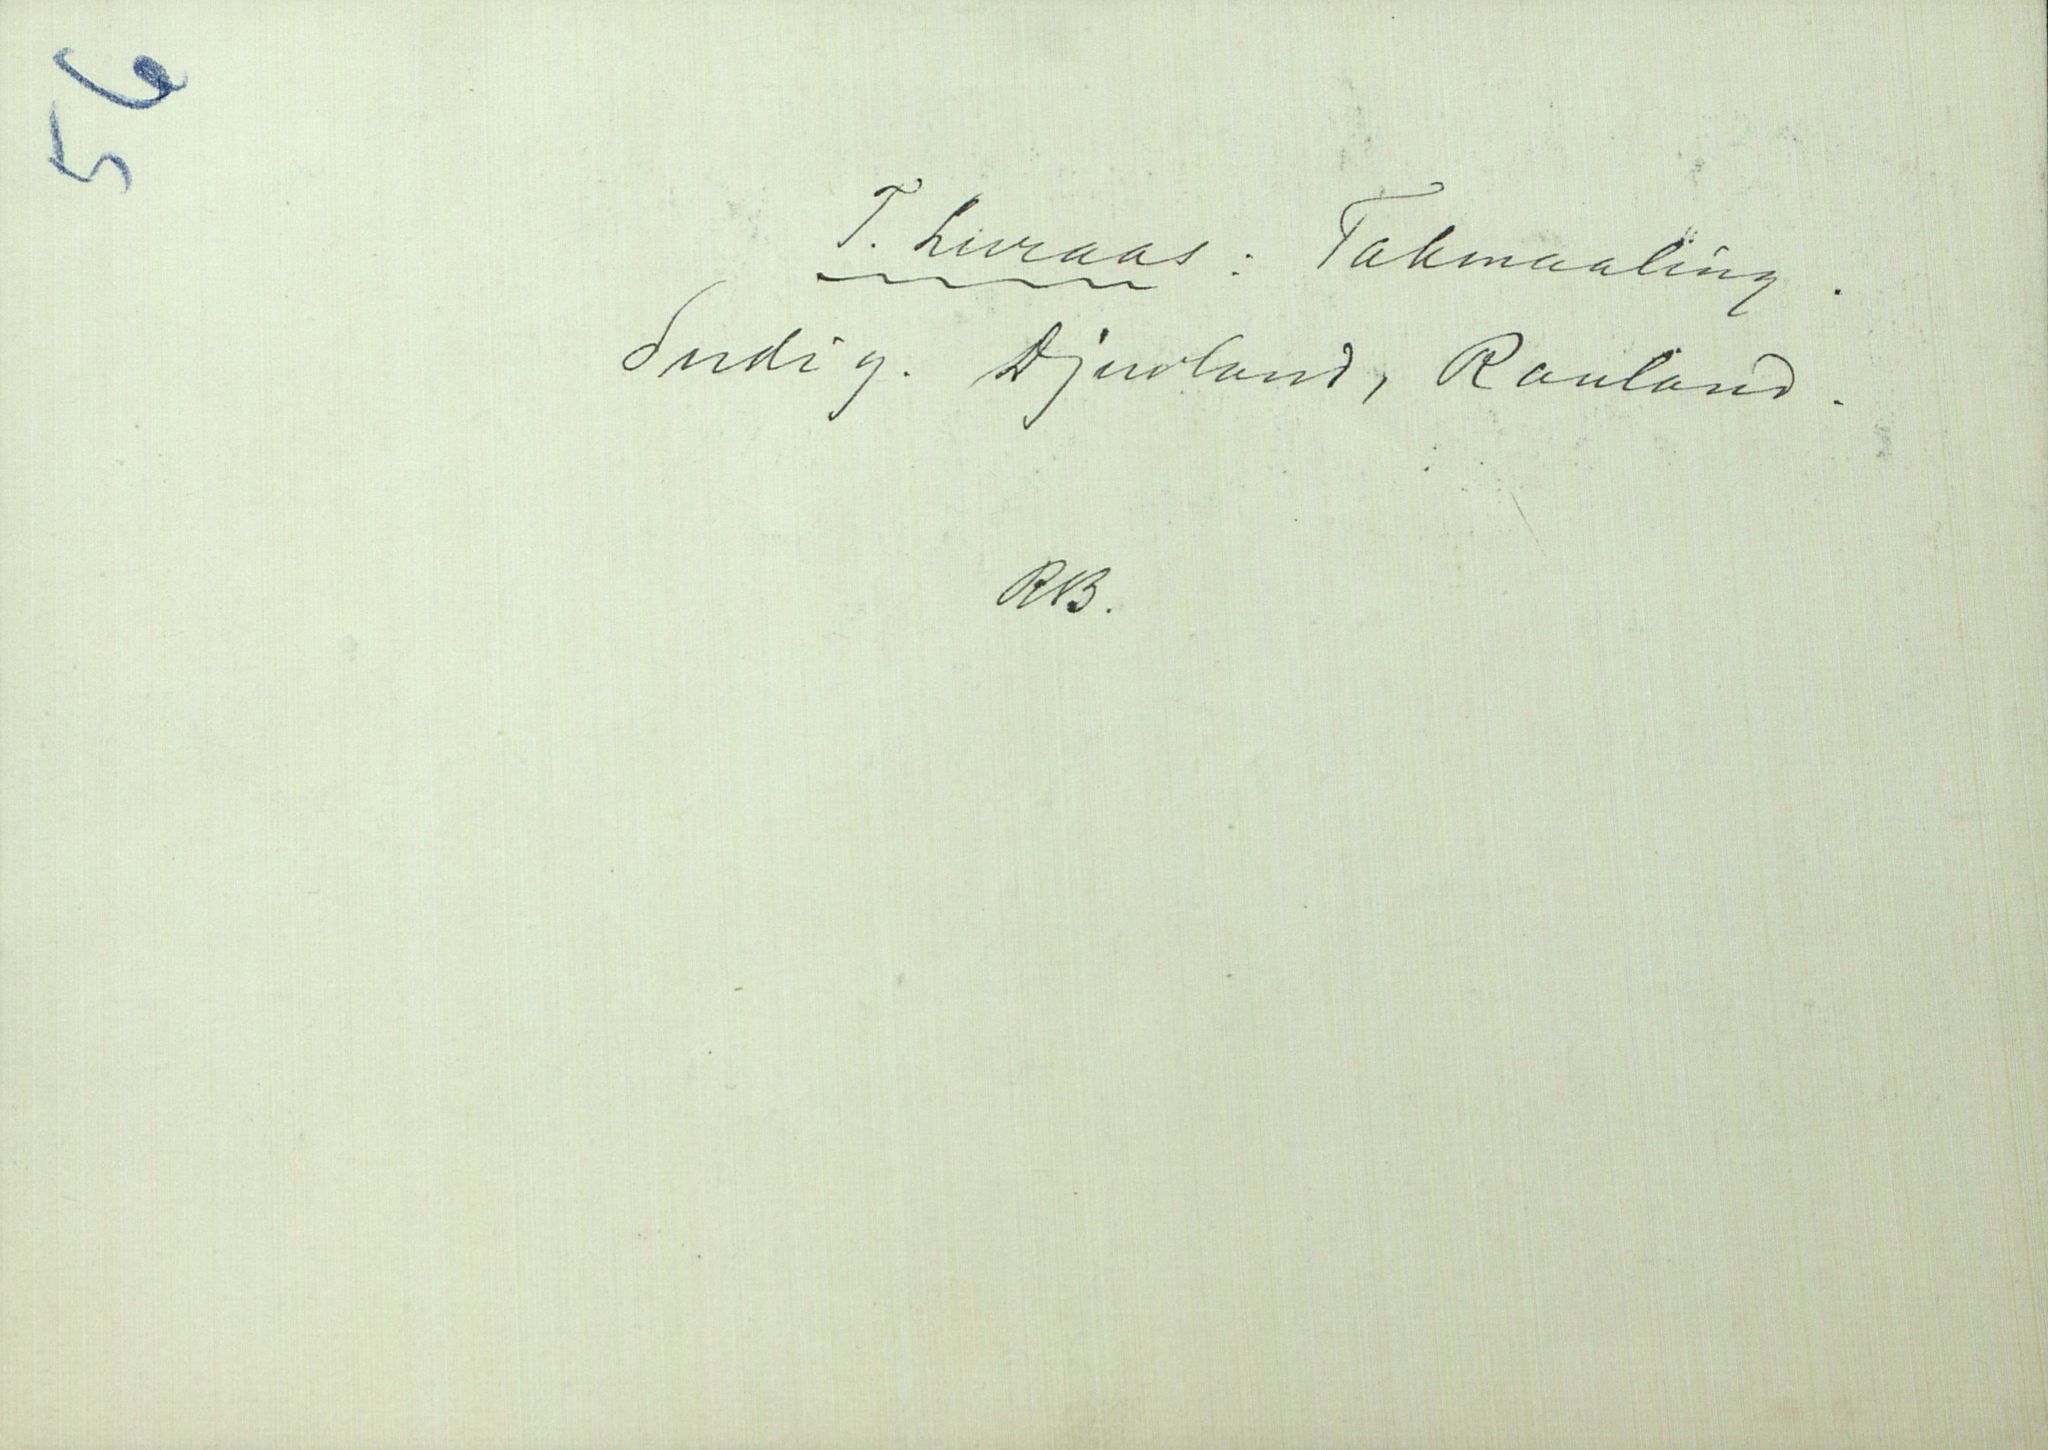 56
T. Luraas: Takmaaling.
Sudig. Djuvland, Rauland.
RB.